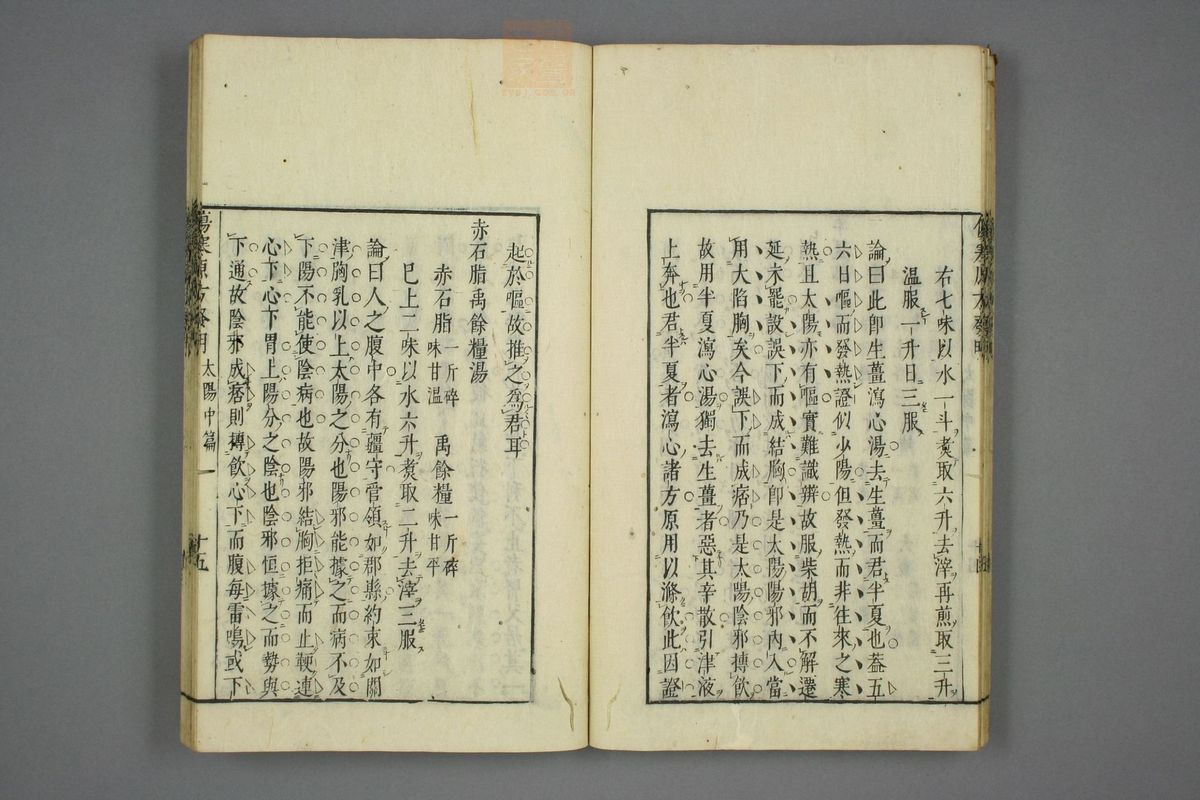 右七味以水一斗煑取六升去滓再煎取三升
温服一升日三服
論曰此卽生薑瀉心湯去生薑而君半夏也葢五
六日嘔而發熱證似少陽但發熱而非往來之寒
熱且太陽亦有嘔實難識辨故服柴胡而不解遷
延未罷設誤下而成結胸卽是太陽陽邪內入當
用大陷胸矣今誤下而成痞乃是太陽陰邪搏飲
故用半夏瀉心湯獨去生薑者惡其辛散引津液
上奔也君半夏者瀉心諸方原用以滌飲此因證
起於嘔故推之爲君耳
赤石脂禹餘糧湯
赤石脂一斤碎味甘温 禹餘糧一斤碎味甘平
巳上二味以水六升煑取二升去滓三服
論曰人之腹中各有疆守管領如郡縣約束如關
津胸乳以上太陽之分也陽邪能據之而病不及
下陽不能使陰病也故陽邪結胸拒痛而止鞕連
心下心下胃上陽分之陰也陰邪恒據之而勢與
下通故陰邪成痞則搏飲心下而腹每雷鳴或下
傷寒原方發明 太陽中篇 十五